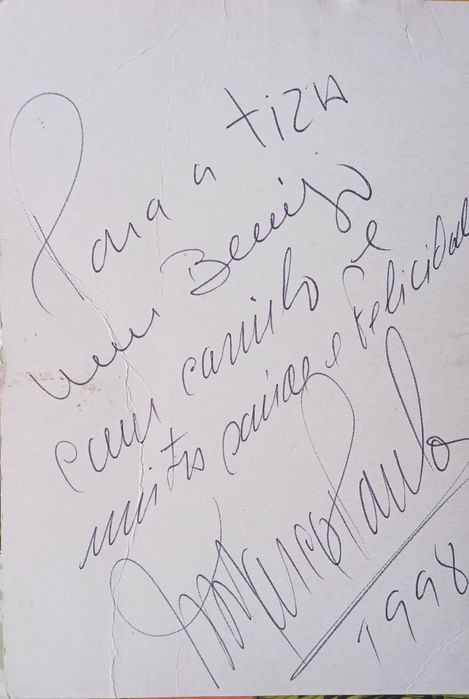 Para a Tiza
um Beeijo
com carinho e
muitas paixoes e Felicidad
Marco Paulo
1998